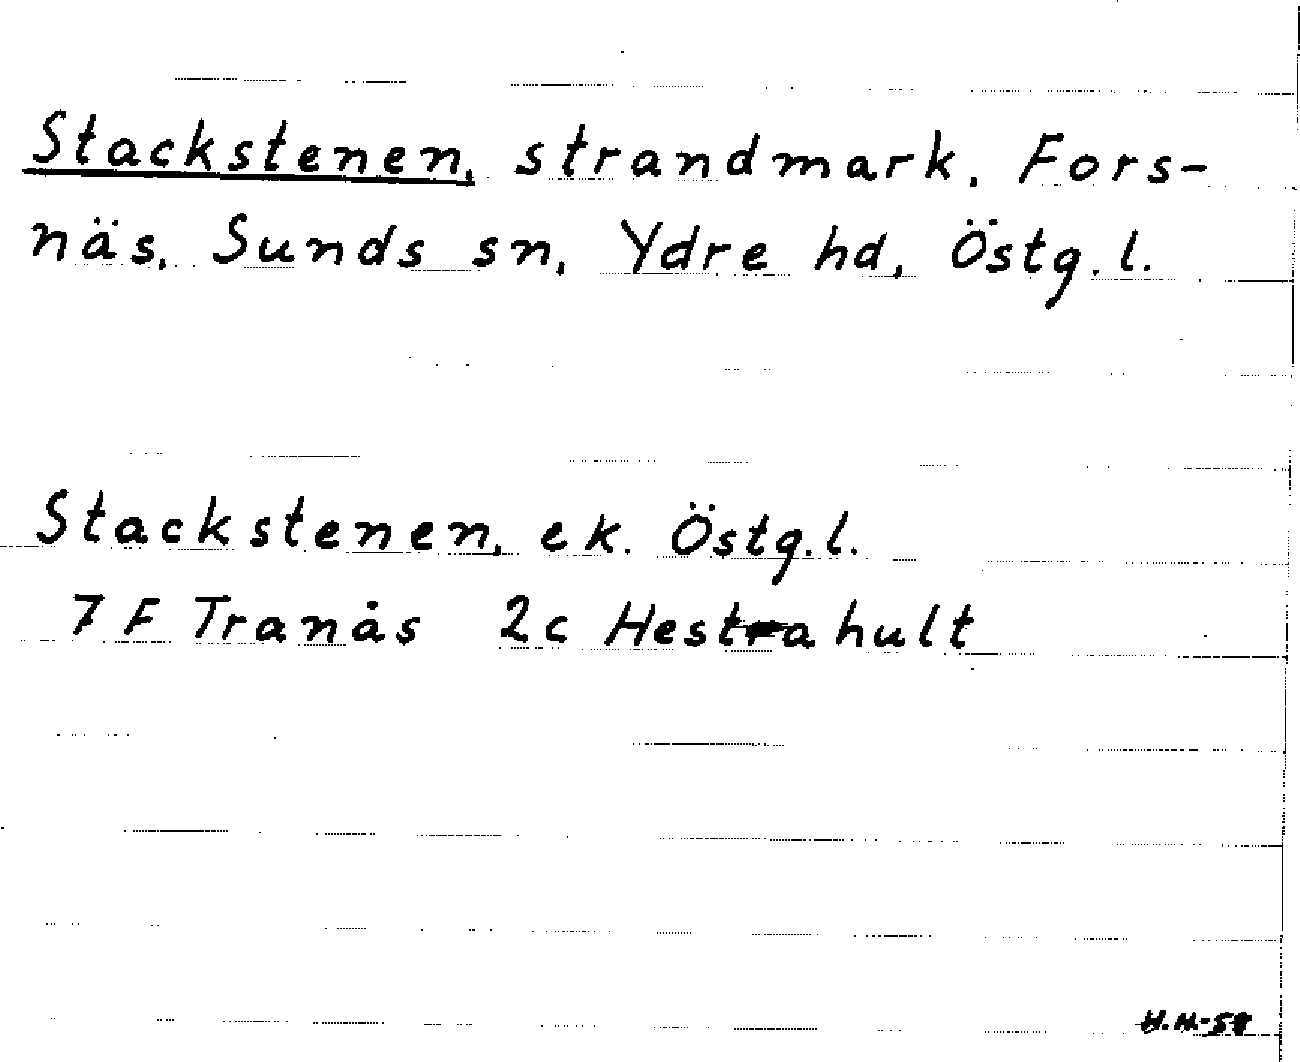 Stackstenen, strandmark, Fors-
näs, Sunds sn, Ydre hd, Östg. l.
Stackstenen, ek. Östg. l.
7 F Tranås 2c Hestrahult
H.H-58